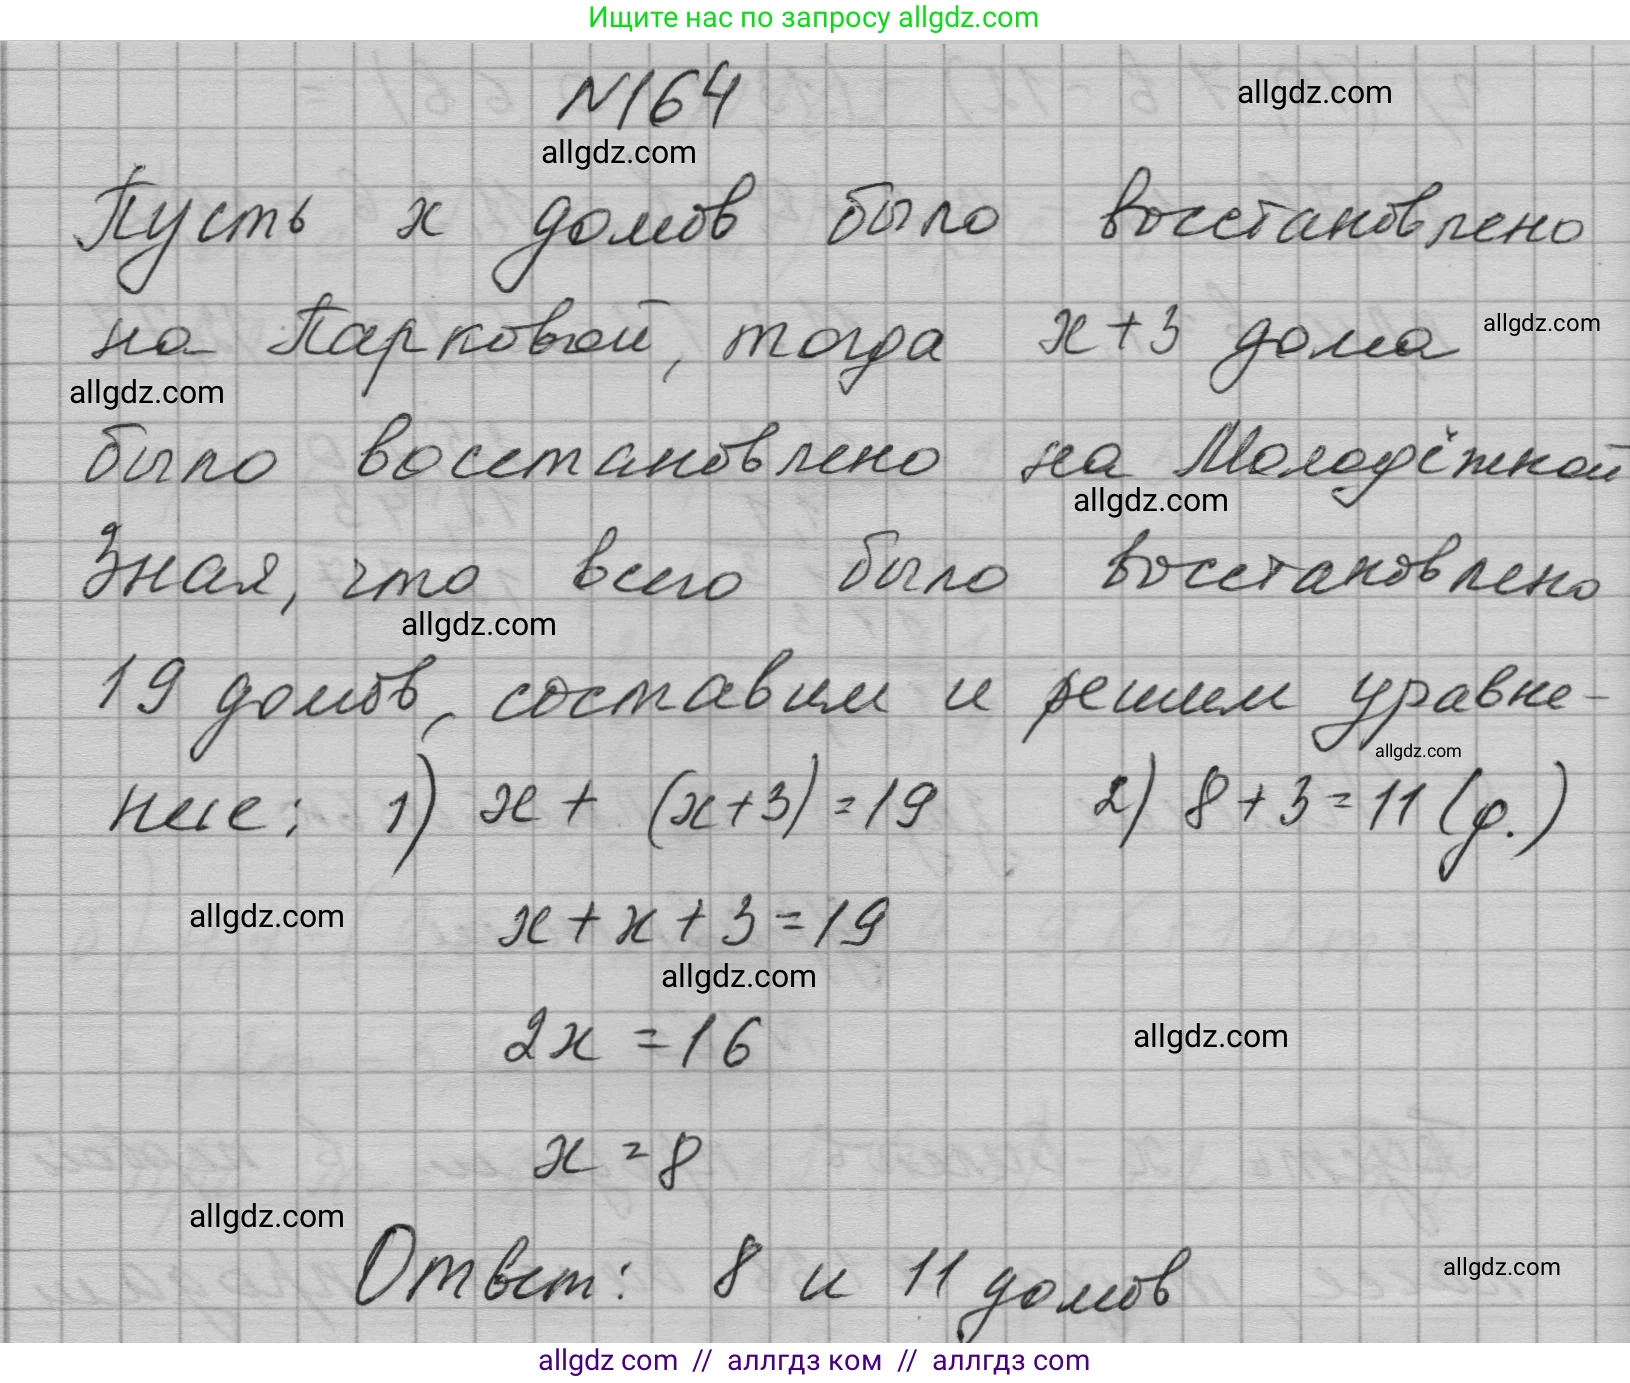 Ищите нас по запросу allgdz.com
№164
allgdz.com
allgdz.com
Пусть х домов было восстановлено
на Парковой, тогда х+3 дома
allgdz.com
allgdz.com
было восстановлено на Молодёжной
allgdz.com
Зная, что всего было восстановлено
allgdz.com
19 домов, составим и решим уравне-
allgdz.com
ние: 1) х + (х+3) = 19 2) 8+3=11 (д.)
allgdz.com
х + х + 3 = 19
allgdz.com
2х = 16
allgdz.com
х = 8
allgdz.com
Ответ: 8 и 11 домов
allgdz.com
allgdz com // аллгдз ком // аллгдз com